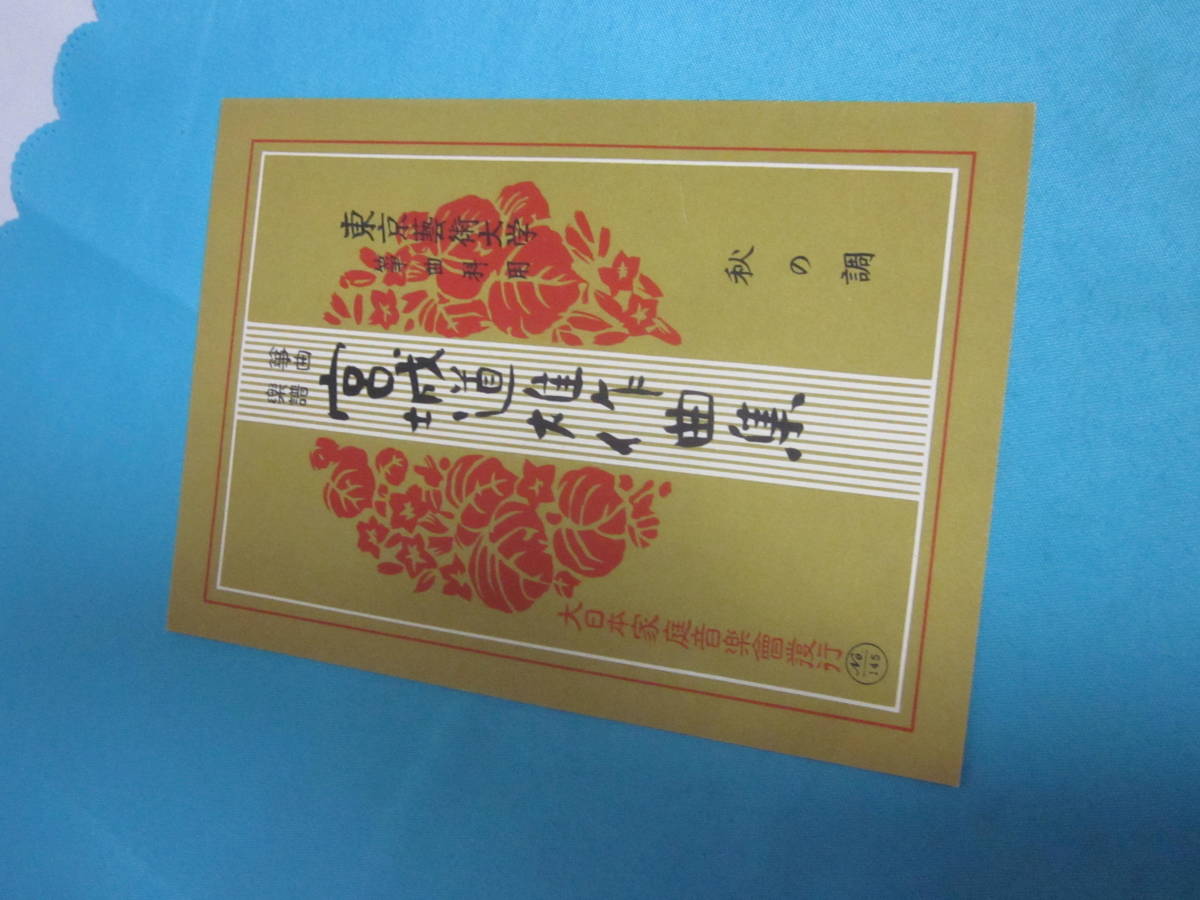 秋の調
東京藝術大学
箏曲科用
箏曲
楽譜
宮城道雄作曲集
大日本家庭音楽會発行
No
145